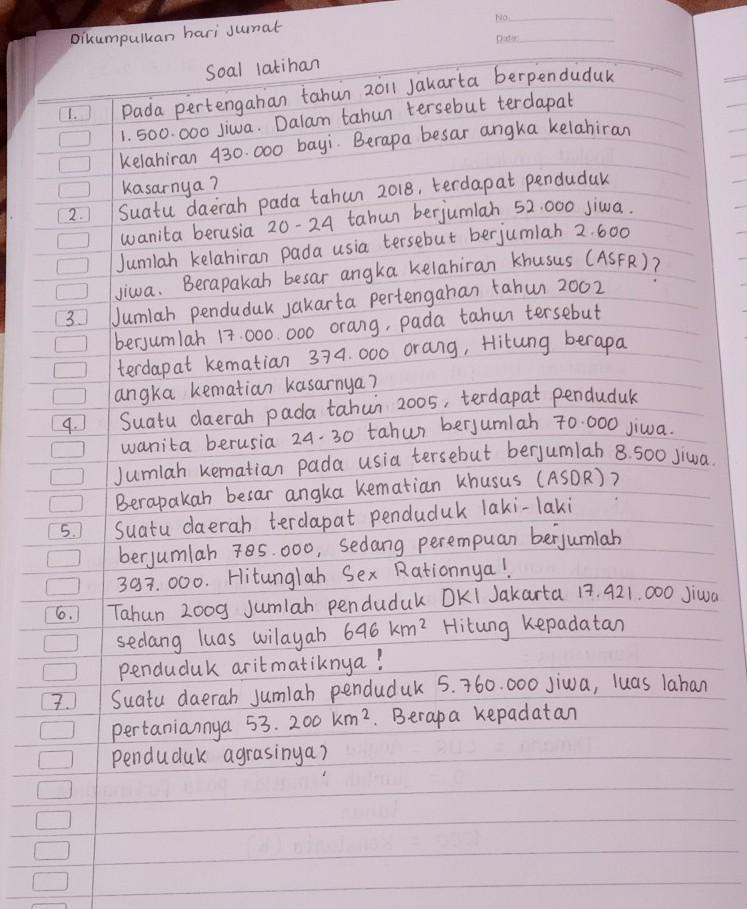 No.
Date:
Dikumpulkan hari Jumat
Soal latihan
1. Pada pertengahan tahun 2011 Jakarta berpenduduk
1.500.000 Jiwa. Dalam tahun tersebut terdapat
kelahiran 430.000 bayi. Berapa besar angka kelahiran
kasarnya?
2. Suatu daerah pada tahun 2018, terdapat penduduk
wanita berusia 20-24 tahun berjumlah 52.000 jiwa.
Jumlah kelahiran pada usia tersebut berjumlah 2.600
jiwa. Berapakah besar angka kelahiran khusus (ASFR)?
3. Jumlah penduduk Jakarta pertengahan tahun 2002
berjumlah 17.000.000 orang, pada tahun tersebut
terdapat kematian 374.000 orang, Hitung berapa
angka kematian kasarnya?
4. Suatu daerah pada tahun 2005, terdapat penduduk
wanita berusia 24-30 tahun berjumlah 70.000 jiwa.
Jumlah kematian pada usia tersebut berjumlah 8.500 jiwa.
Berapakah besar angka kematian khusus (ASDR)?
5. Suatu daerah terdapat penduduk laki-laki
berjumlah 785.000, Sedang perempuan berjumlah
397.000. Hitunglah Sex Rationnya!
6. Tahun 2009 Jumlah penduduk DKI Jakarta 17.421.000 Jiwa
sedang luas wilayah 646 km² Hitung kepadatan
penduduk aritmatiknya!
7. Suatu daerah Jumlah penduduk 5.760.000 Jiwa, luas lahan
pertaniannya 53.200 km². Berapa kepadatan
Penduduk agrasinya?